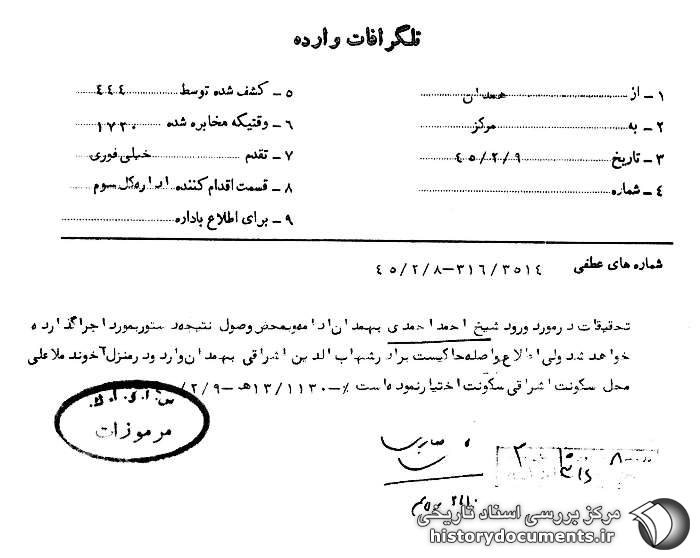 تلگرافات وارده
۱ - از همدان
۲ - به مرکز
۳ - تاریخ ۴۵/۲/۹
۴ - شماره
۵ - کشف شده توسط ۴۴۴
۶ - وقتیکه مخابره شده ۱۷۳۰
۷ - تقدم خیلی فوری
۸ - قسمت اقدام کننده اداره کل سوم
۹ - برای اطلاع باداره
شماره های عطفی ۳۱۶/۳۵۱۴-۴۵/۲/۸
تحقیقات درمورد ورود شیخ احمد احمدی بهمدان ادامه وبمحض وصول نتیجه دستور بمورد اجرا گذارده
خواهد شد ولی اطلاع واصله حاکیست برادر شهاب الدین اشراقی بهمدان وارد ودر منزل آخوند ملاعلی
محل سکونت اشراقی سکونت اختیار نموده است ٪-۱۳/۱۱۳۰ه-۴۵/۲/۹
س.ا.و.ا.ک.
مرموزات
مرکز بررسی اسناد تاریخی
historydocuments.ir